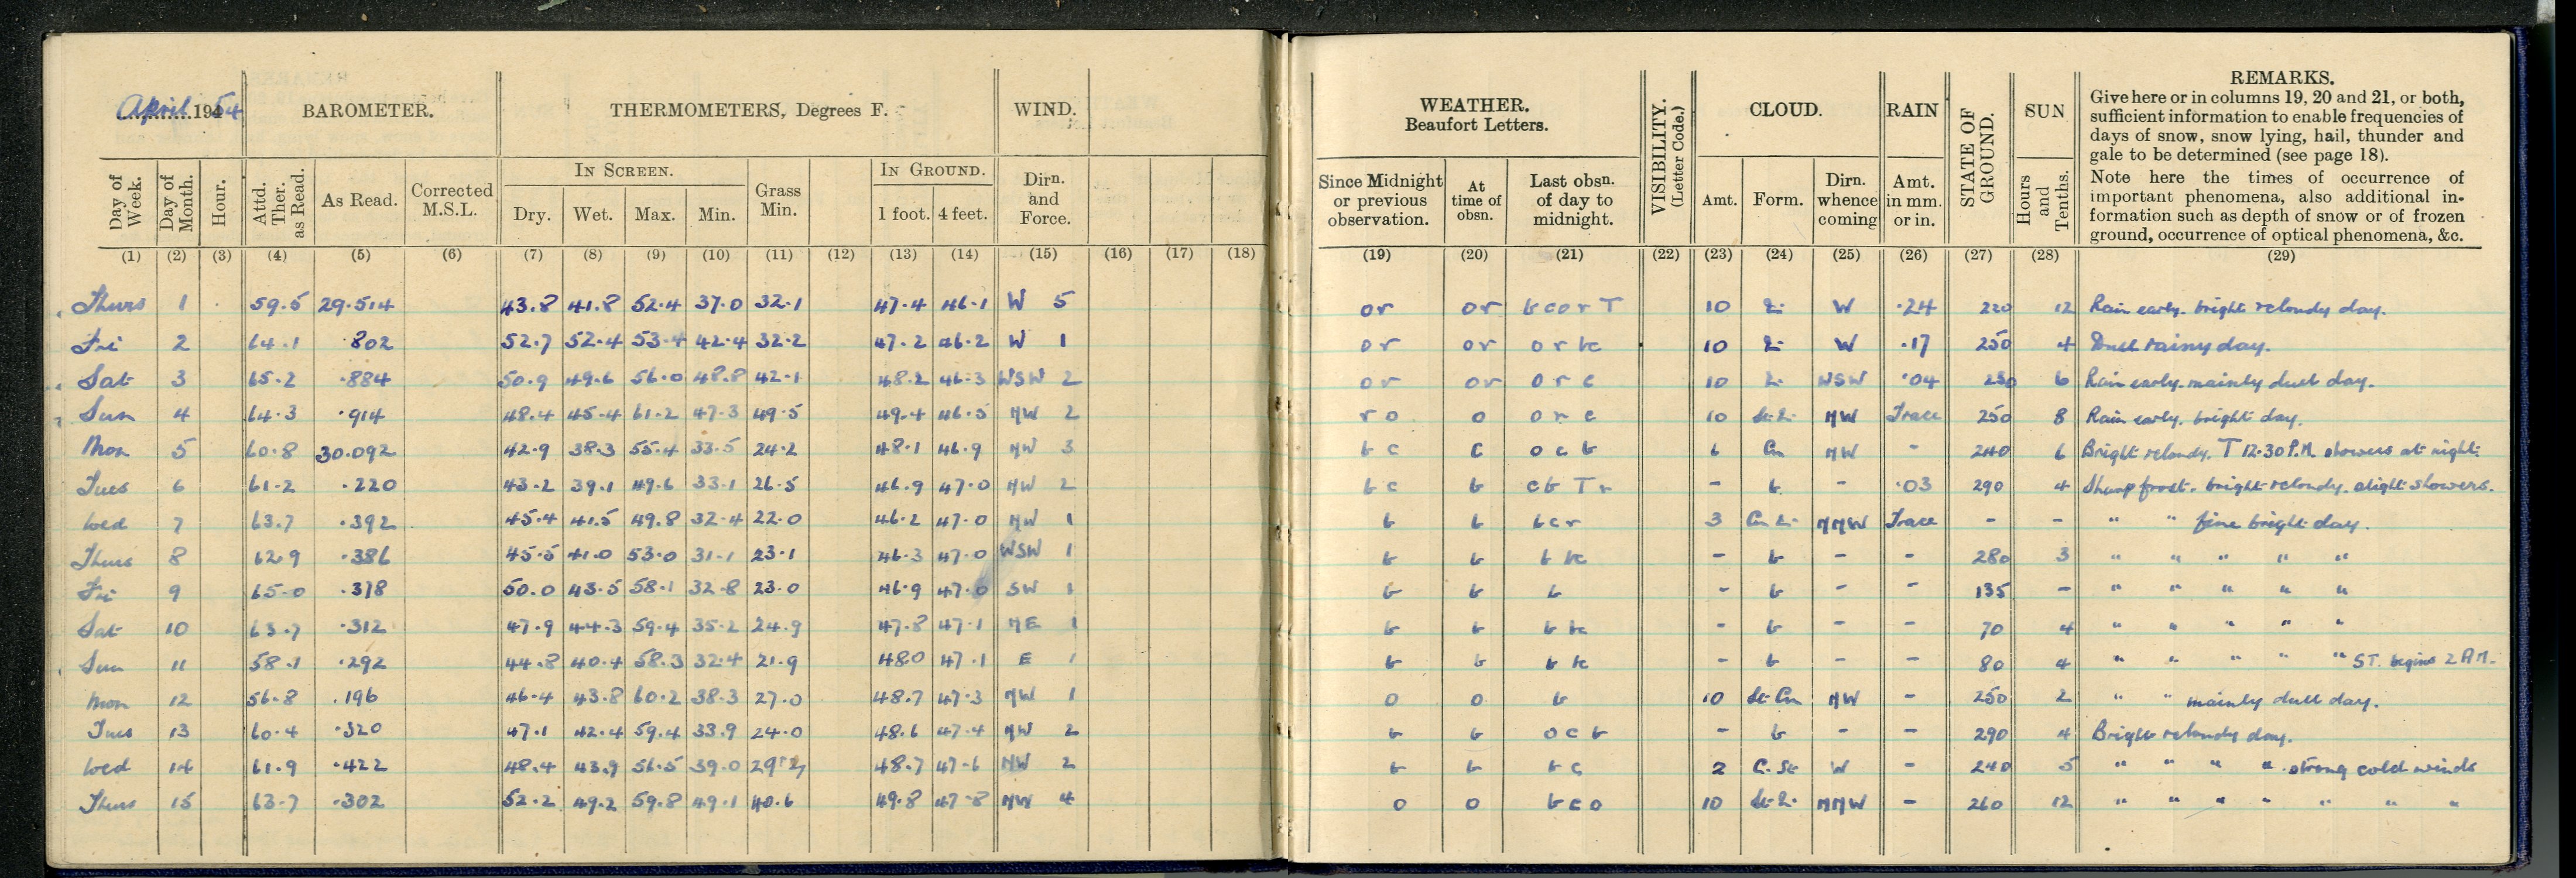 April 1954 BAROMETER. THERMOMETERS, Degrees F. WIND.
Day of Week. Day of Month. Hour. Attd. Ther. as Read. As Read. Corrected M.S.L. IN SCREEN. Dry. Wet. Max. Min. Grass Min. IN GROUND. 1 foot. 4 feet. Dirn. and Force.
(1) (2) (3) (4) (5) (6) (7) (8) (9) (10) (11) (12) (13) (14) (15) (16) (17) (18)
Thurs 1 59.5 29.514 43.8 41.8 52.4 37.0 32.1 47.4 46.1 W 5
Fri 2 64.1 .802 52.7 52.4 53.4 42.4 32.2 47.2 46.2 W 1
Sat 3 65.2 .884 50.9 49.6 56.0 48.8 42.1 48.2 46.3 WSW 2
Sun 4 64.3 .914 48.4 45.4 61.2 47.3 49.5 49.4 46.5 NW 2
Mon 5 60.8 30.092 42.9 38.3 55.4 33.5 24.2 48.1 46.9 NW 3
Tues 6 61.2 .220 43.2 39.1 49.6 33.1 26.5 46.9 47.0 NW 2
Wed 7 63.7 .392 45.4 41.5 49.8 32.4 22.0 46.2 47.0 NW 1
Thurs 8 62.9 .386 45.5 41.0 53.0 31.1 23.1 46.3 47.0 WSW 1
Fri 9 65.0 .318 50.0 43.5 58.1 32.8 23.0 46.9 47.0 SW 1
Sat 10 63.7 .312 47.9 44.3 59.4 35.2 24.9 47.8 47.1 NE 1
Sun 11 58.1 .292 44.8 40.4 58.3 32.4 21.9 48.0 47.1 E 1
Mon 12 56.8 .196 46.4 43.8 60.2 38.3 27.0 48.7 47.3 NW 1
Tues 13 60.4 .320 47.1 42.4 59.4 33.9 24.0 48.6 47.4 NW 2
Wed 14 61.9 .422 48.4 43.9 56.5 39.0 29.2 48.7 47.6 NW 2
Thurs 15 63.7 .302 52.2 49.2 59.8 49.1 40.6 49.8 47.8 NW 4
WEATHER. Beaufort Letters. VISIBILITY. (Letter Code.) CLOUD. RAIN STATE OF GROUND. SUN REMARKS.
Give here or in columns 19, 20 and 21, or both,
sufficient information to enable frequencies of
days of snow, snow lying, hail, thunder and
gale to be determined (see page 18).
Note here the times of occurrence of
important phenomena, also additional in-
formation such as depth of snow or of frozen
ground, occurrence of optical phenomena, &c.
Since Midnight or previous observation. At time of obsn. Last obsn. of day to midnight. Amt. Form. Dirn. whence coming Amt. in mm. or in. Hours and Tenths.
(19) (20) (21) (22) (23) (24) (25) (26) (27) (28) (29)
or or bcorT 10 W .24 220 12 Rain early. bright day.
or or 10 W .17 250 4 Dull rainy day.
or or orc 10 WSW .04 6 Rain early. mainly dull day.
ro o orc 10 NW Trace 250 8 Rain early. bright day.
bc c ocb 6 Cu NW - 240 6 Bright T 12.30 P.M. showers at night.
bc b cbTr - b - .03 290 4 Sharp frost. bright slight showers.
b b bcr 3 NNW Trace - - " " fine bright day.
b b b - b - - 280 3 " " " " "
b b b - b - - 135 - " " " " "
b b b - b - - 70 4 " " " " "
b b b - b - - 80 4 " " " " " ST. begins 2 A.M.
o o b 10 St Cu NW - 250 2 " " mainly dull day.
b b ocb - b - - 290 4 Bright day.
b b bc 2 C. St W - 240 5 " " " " strong cold winds
o o bco 10 NNW - 260 12 " " " " " " "